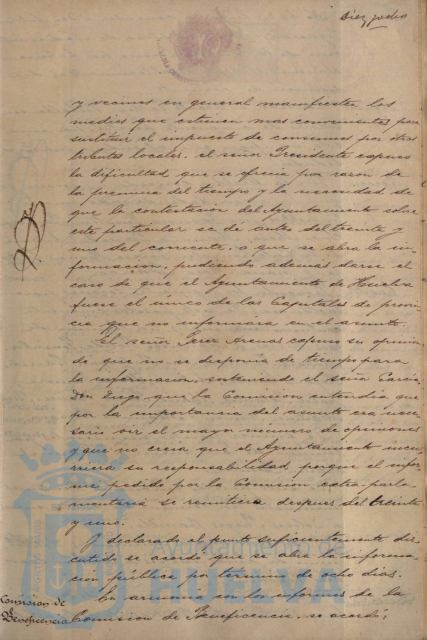 Diez y ocho
y vecinos en general manifiesten los
medios que estimen mas convenientes para
sustituir el impuesto de consumos por otros
tributos locales. el señor Presidente expuso
la dificultad que se ofrecia por razon de
la premura del tiempo y la necesidad de
que la contestacion del Ayuntamiento sobre
este particular se dé antes del treinta y
uno del corriente, a que se abra la in-
formacion, pudiendo además darse el
caso de que el Ayuntamiento de Huelva
fuese el único de las Capitales de provin
cia que no informára en el asunto.
El señor Perez Arenas expuso su opinion
de que no se disponia de tiempo para
la informacion, sosteniendo el señor Garcia
Don Diego que la Comision entendia que
por la importancia del asunto era nece
sario oir el mayor número de opiniones
y que no creia que el Ayuntamiento incu
rriera en responsabilidad porque el infor
me pedido por la Comision extra-parla
mentaria se remitiera despues del treinta
y uno.
Y declarado el punto suficientemente dis
cutido se acordó que se abra la informa
cion pública por termino de ocho dias.
Comision de
Beneficencia
En armonia con los informes de la
Comision de Beneficencia, se acordó;
Ayuntamiento de
HUELVA